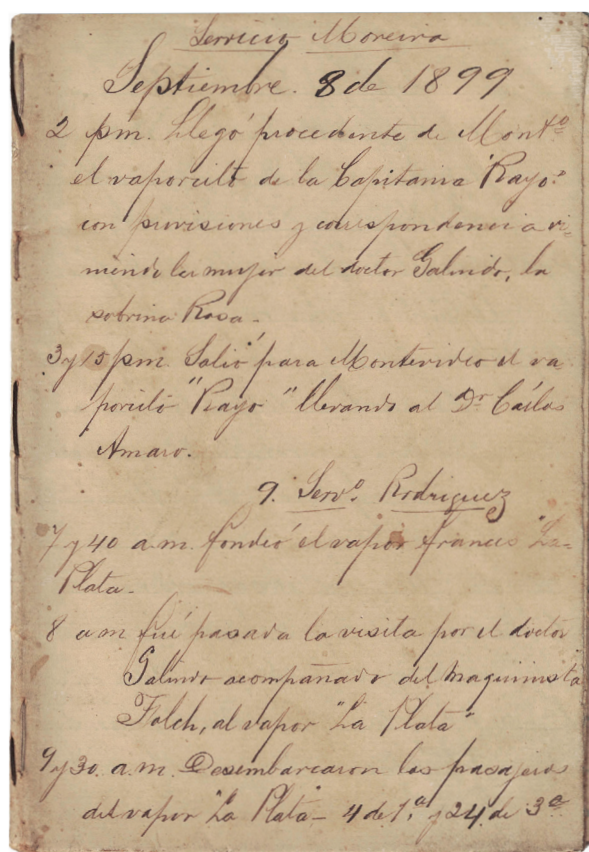 Servicio Moreira
Septiembre. 8 de 1899
2 pm. Llegó procedente de Montº
el vaporcito de la Capitania "Rayo"
con provisiones y correspondencia vi-
niendo la mujer del doctor Galindo, la
sobrina Rosa -
3 y 15 pm. Salió para Montevideo el va
porcito "Rayo" llevando al Dr Cárlos
Amaro.
9. Servº. Rodriguez
7 y 40 a.m. fondeó el vapor francés "La-
Plata -
8 a m fué pasada la visita por el doctor
Galindo acompañado del maquinista
Folch, al vapor "La Plata"
9 y 30. a.m. Desembarcaron los pasajeros
del vapor "La Plata - 4 de 1ª. y 24 de 3ª